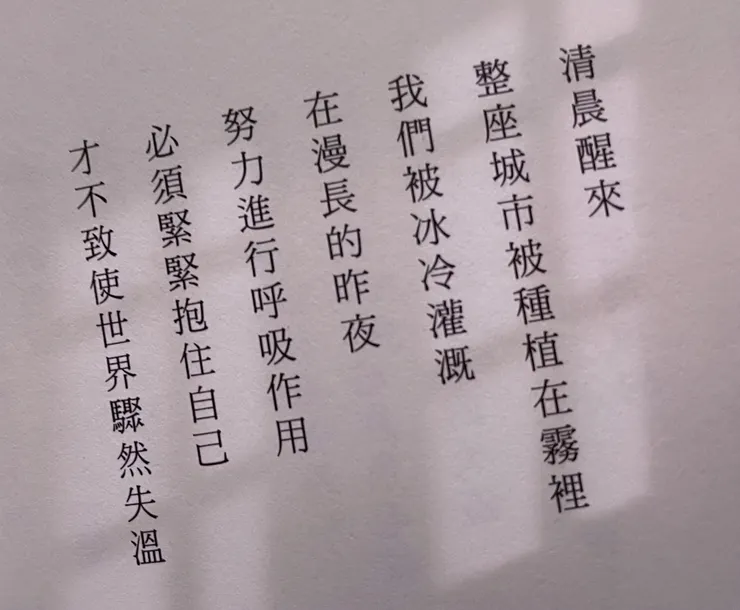 清晨醒來
整座城市被種植在霧裡
我們被冰冷灌溉
在漫長的昨夜
努力進行呼吸作用
必須緊緊抱住自己
才不致使世界驟然失溫